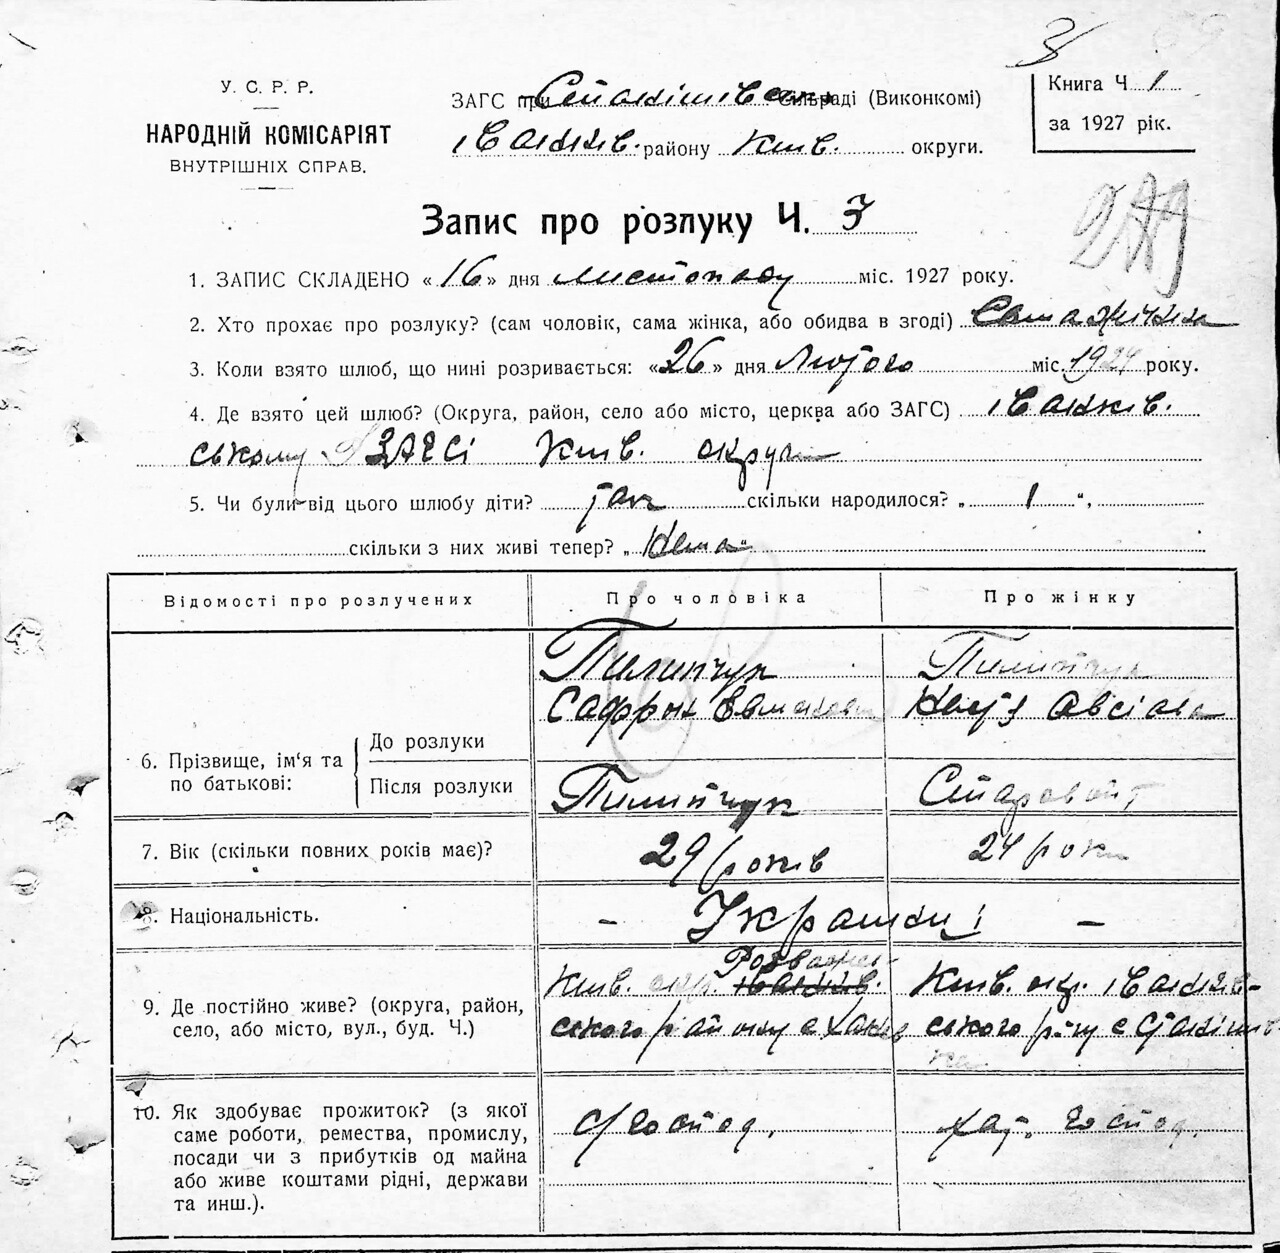 У. С. Р. Р.
НАРОДНІЙ КОМІСАРІЯТ
ВНУТРІШНІХ СПРАВ.
3
ЗАГС при Сільраді (Виконкомі)
Іванків. району Київ. округи.
Книга Ч 1
за 1927 рік.
Запис про розлуку Ч. 3
1. ЗАПИС СКЛАДЕНО «16» дня листопаду міс. 1927 року.
2. Хто прохає про розлуку? (сам чоловік, сама жінка, або обидва в згоді) Сама жінка
3. Коли взято шлюб, що нині розривається: «26» дня Лютого міс. 1924 року.
4. Де взято цей шлюб? (Округа, район, село або місто, церква або ЗАГС) Іванків.
ському ЗАГСі Київ. округи
5. Чи були від цього шлюбу діти? так скільки народилося? „ 1 “,
скільки з них живі тепер? „Нема“
Відомості про розлучених
Про чоловіка
Про жінку
6. Прізвище, ім'я та по батькові:
До розлуки
Пилипчук
Сафрон
Пилипчук
Після розлуки
Пилипчук
Старовойт
7. Вік (скільки повних років має)?
29 років
24 роки
8. Національність.
– Українці –
9. Де постійно живе? (округа, район,
село, або місто, вул., буд. Ч.)
Київ. окр. Іванків. Розважів-
ського району с
Київ. окр. Іванків-
ського р-ну с
10. Як здобуває прожиток? (з якої
саме роботи, ремества, промислу,
посади чи з прибутків од майна
або живе коштами рідні, держави
та инш.).
с/господ.
хат. господ.